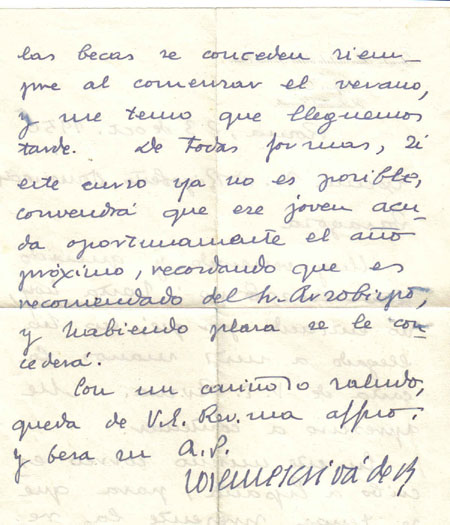 las becas se conceden siem-
pre al comenzar el verano,
y me temo que lleguemos
tarde. De todas formas, si
este curso ya no es posible,
convendrá que ese joven acu-
da oportunamente el año
próximo, recordando que es
recomendado del Sr. Arzobispo,
y habiendo plaza se le con-
cederá.
Con un cariñoso saludo,
queda de V.E. Rev.ma affmo.
y besa su A.P.